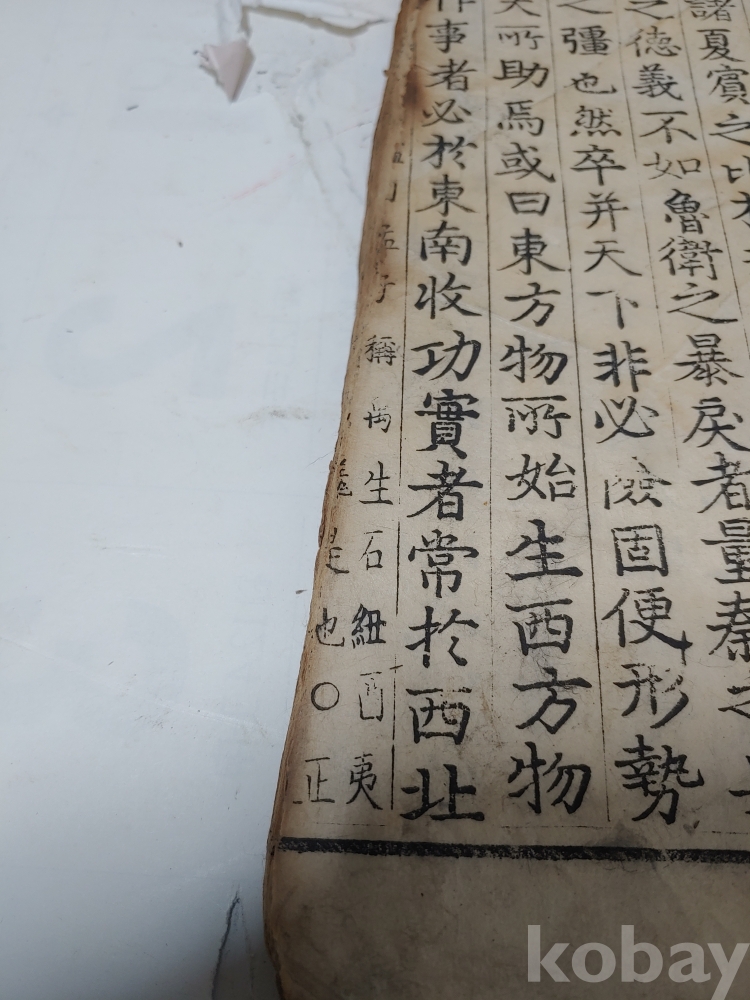 諸夏賓之比
之德義不如魯衛之暴戾者量秦之
之彊也然卒并天下非必險固便形勢
天所助焉或曰東方物所始生西方物
作事者必於東南收功實者常於西北
孟子稱禹生石紐西夷
也○正
kobay